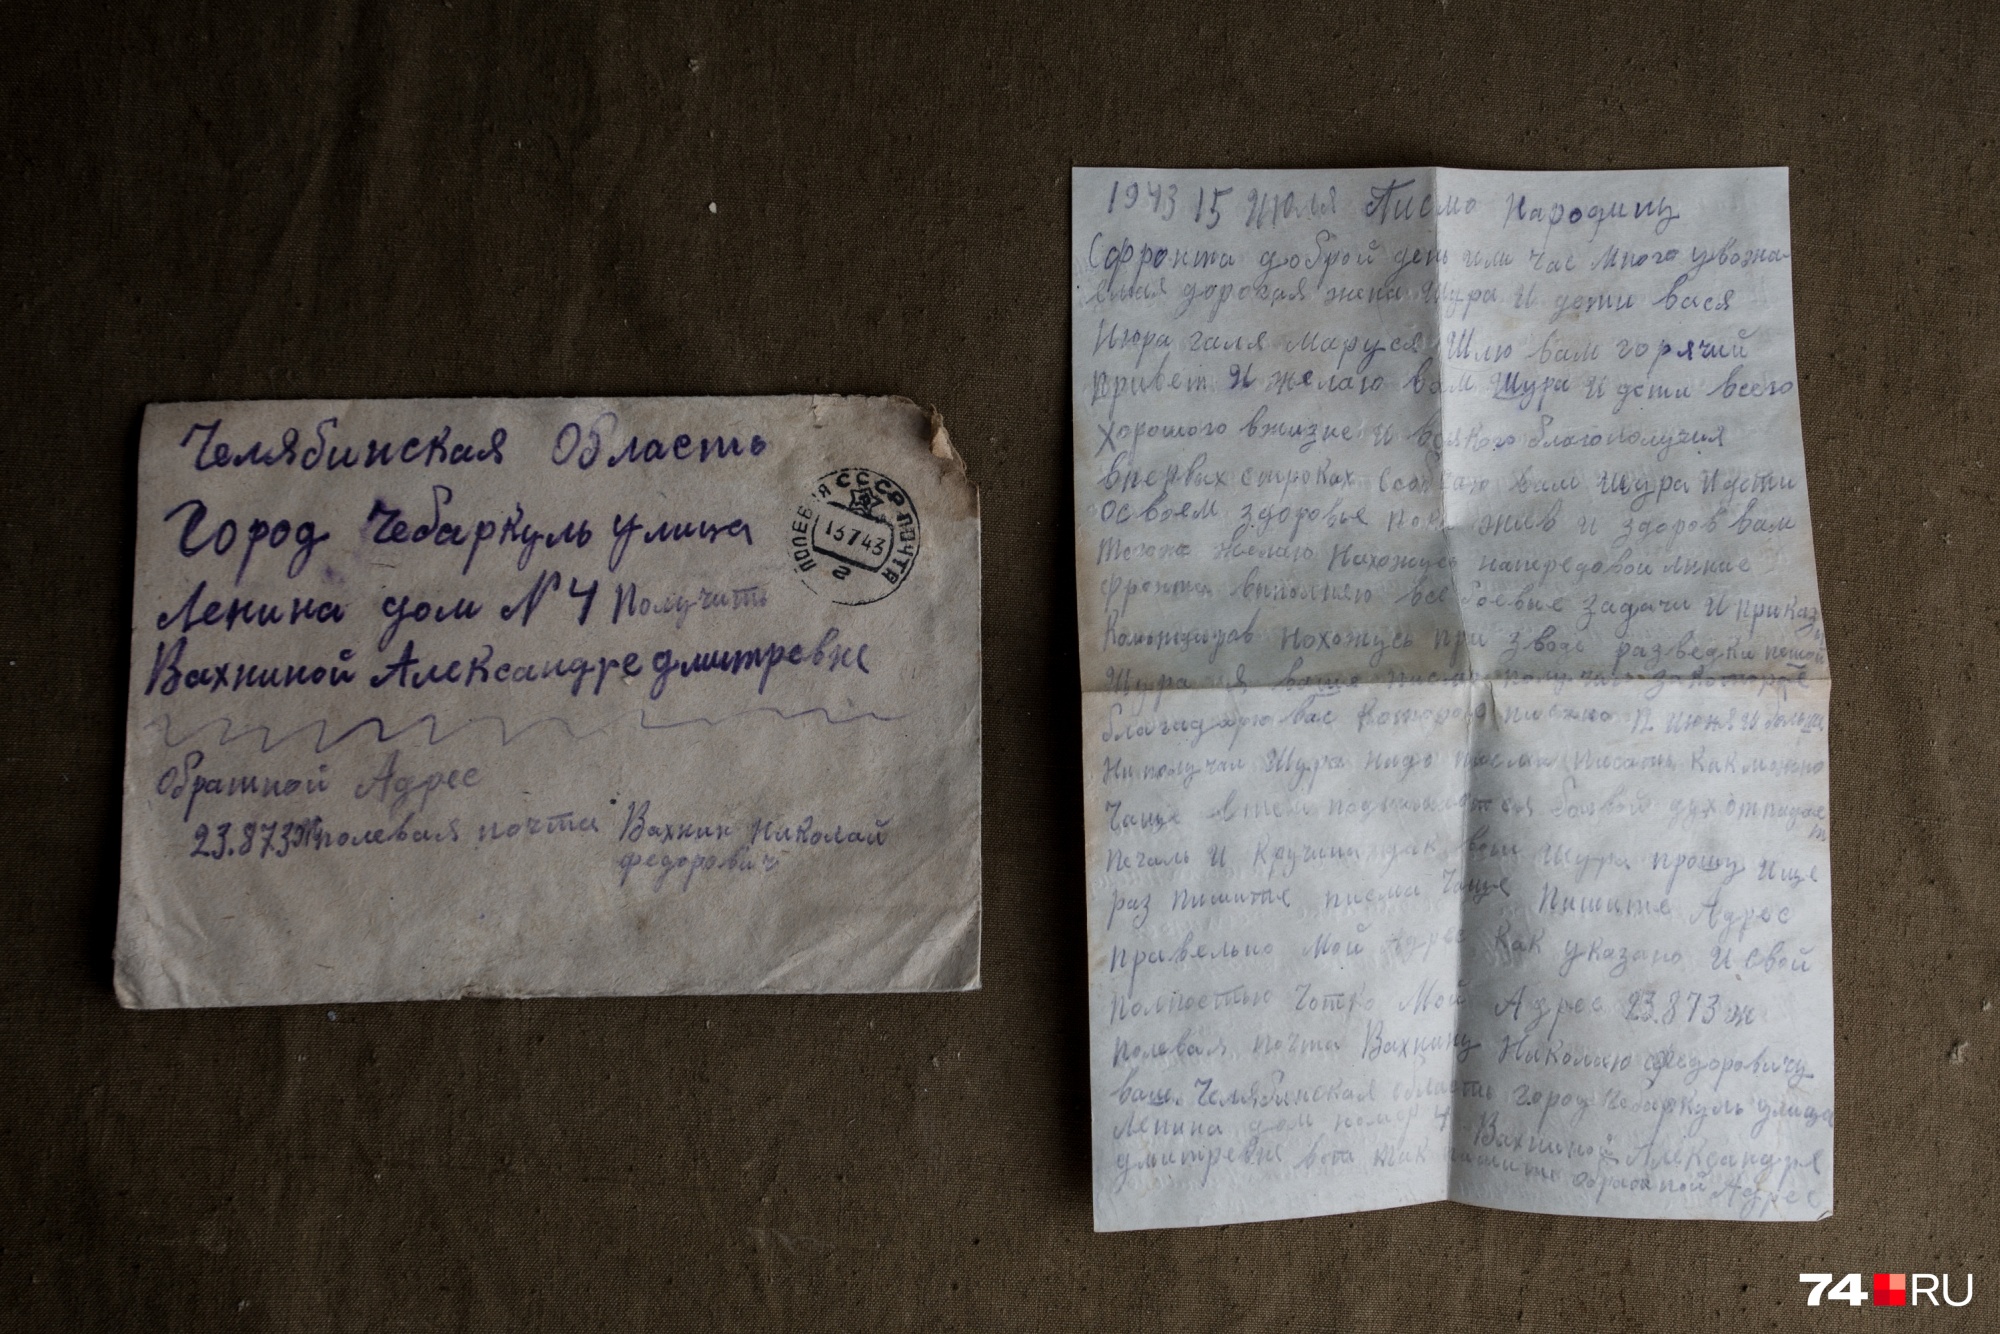 Челябинская Область
Город Чебаркуль улица
Ленина дом N 4 Получить
Вахниной Александре дмитревне
Обратной Адрес
23.873 полевая почта Вахнин Николай
федорович
ПОЛЕВАЯ СССР ПОЧТА
15 7 43
2
1943 15 Июля Писмо Народину
Сфронта доброй день или Час много уvозна-
емая дорогая жена Шура И дети вася
Нюра галя маруся Шлю вам горячий
привет И желаю вам Шура И дети всего
хорошого вжизне И всякого благополучия
впервых строках Сообчаю вам Шура И дети
освоем здоровье пока жив и здоров вам
тогоже желаю Нахожусь напередовой линие
фронта выполняю все боевые задачи И приказы
Командиров Нохожусь при взводе разведки пешой
Шура я ваше писмо получил закоторое
благадарю вас которого писано 12 Июня И больше
Ни получал Шура надо писма писать Как можно
Чаще боевой дух отпадает
печаль И Кручина Шура прошу Ище
раз пишите писма Чаще Пишите Адрес
правельно мой Адрес Как указано И свой
полностью Чотко Мой Адрес 23.873 ж
полевая почта Вахнину Николаю федоровичу
ваш Челябинская область город Чебаркуль улица
Ленина дом номер 4 Вахниной Александре
дмитревне вот как пишите обратной Адрес
74 RU